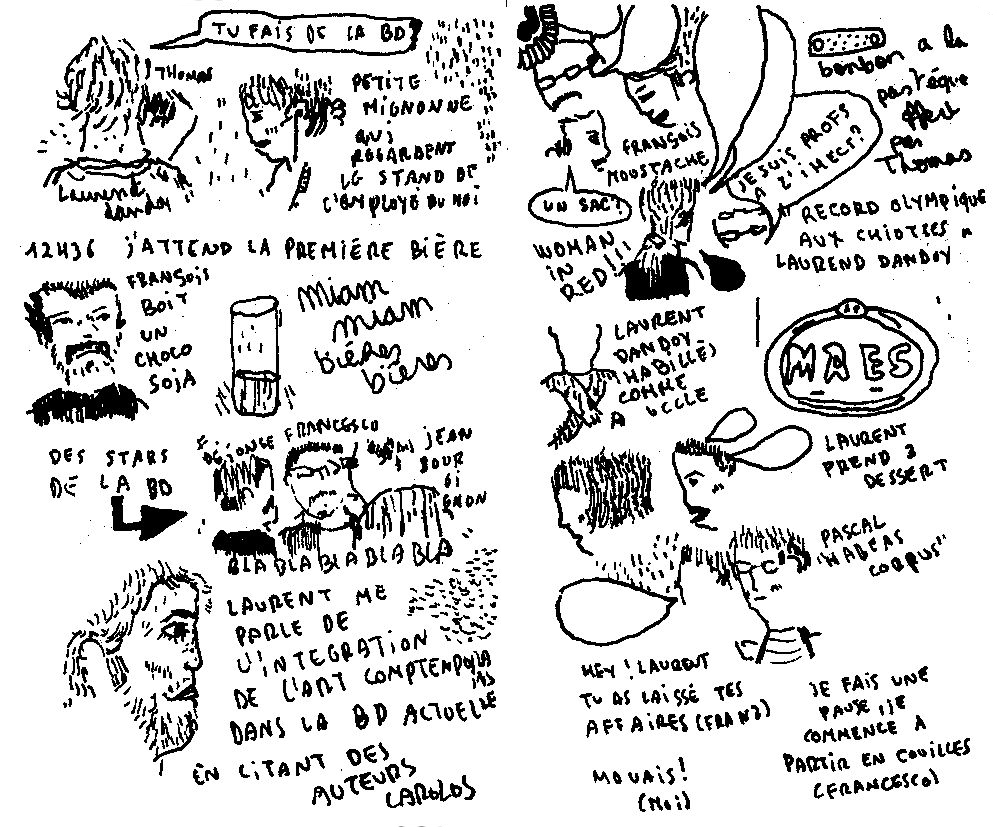 TU FAIS DE LA BD
THOMAS
Laurend
dandoy
PETITE
MIGNONNE
QUI
REGARDENT
LE STAND DE
L'EMPLOYÉ DU MOI
12H36 J'ATTEND LA PREMIÈRE BIÈRE
FRANSOIS
BOIT
UN
CHOCO
SOJA
Miam
miam
bières
bieres
DES STARS
DE LA BD
DEJONGE
FRANCESCO
JEAN
BOUR
GI
GNON
BLA BLA BLA BLA BLA
LAURENT ME
PARLE DE
L'INTEGRATION
DE L'ART COMPTENPORA
INS
DANS LA BD ACTUELLE
EN CITANT DES
AUTEURS
CAROLOS
bonbon a la
pastèque
offert
par
Thomas
FRANSOIS
MOUSTACHE
JE SUIS PROFS
A L'IHECT?
UN SAC?
WOMAN
IN
RED!!!
"RECORD OLYMPIQUE
AUX CHIOTTES"
LAUREND DANDOY
LAURENT
DANDOY
HABILLÉ
COMME
A UCCLE
MAES
LAURENT
PREND 2
DESSERT
PASCAL
"HABEAS
CORPUS"
HEY! LAURENT
TU AS LAISSÉ TES
AFFAIRES (FRANZ)
MOUAIS!
(MOI)
JE FAIS UNE
PAUSE, JE
COMMENCE A
PARTIR EN COUILLES
(FRANCESCO)